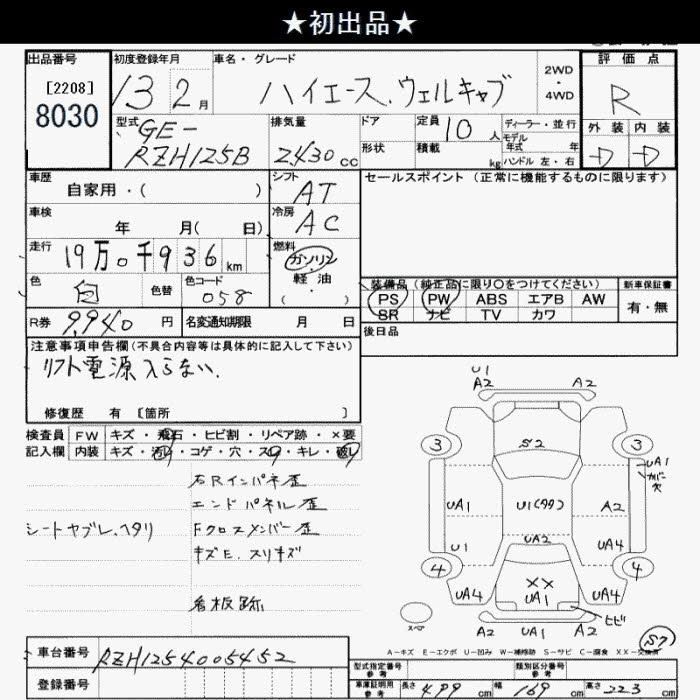 ★初出品★
出品番号
[2208]
8030
初度登録年月
13 2月
車名・グレード
ハイエース.ウェルキャブ
2WD
4WD
評価点
R
外装 内装
D D
型式
GE-
RZH125B
排気量
2,430 cc
ドア
形状
定員 10人
積載 kg
ディーラー・並行
モデル
年式 年
ハンドル 左・右
車歴
自家用・( )
シフト
AT
セールスポイント (正常に機能するものに限ります)
車検
年 月( 日)
冷房
AC
走行
19万0千936 km
燃料
ガソリン
軽油
( ・ )
色
白
色替
色コード
058
装備品 (純正品に限り○をつけてください)
PS PW ABS エアB AW
SR ナビ TV カワ
新車保証書
有・無
R券 9,940 円
名変通知期限 月 日
後日品
注意事項申告欄(不具合内容等は具体的に記入して下さい)
リフト電源入らない.
修復歴 有 [箇所 ]
検査員
記入欄
FW キズ・飛石・ヒビ割・リペア跡・×要
内装 キズ・汚れ・コゲ・穴・スレ・キレ・破レ
右Rインパネ歪
エンドパネル歪
シートヤブレ.ヘタリ
Fクロスメンバー歪
キズE.スリキズ
看板跡
U1
A2 A2
S2
3 3
UA1
カバー
穴
UA1 U1(タタ) A2
U1 UA2 UA4
4 4
UA4 XX UA4
UA1
ヒビ
スペア
A2 UA1 A2
S7
A-キズ E-エクボ U-凹み W-補修跡 S-サビ C-腐食 XX-交換済
車台番号
RZH1254005452
登録番号
型式指定番号
参考
類別区分番号
参考
車庫証明用
参考
長さ 499 cm 幅 169 cm 高さ 223 cm